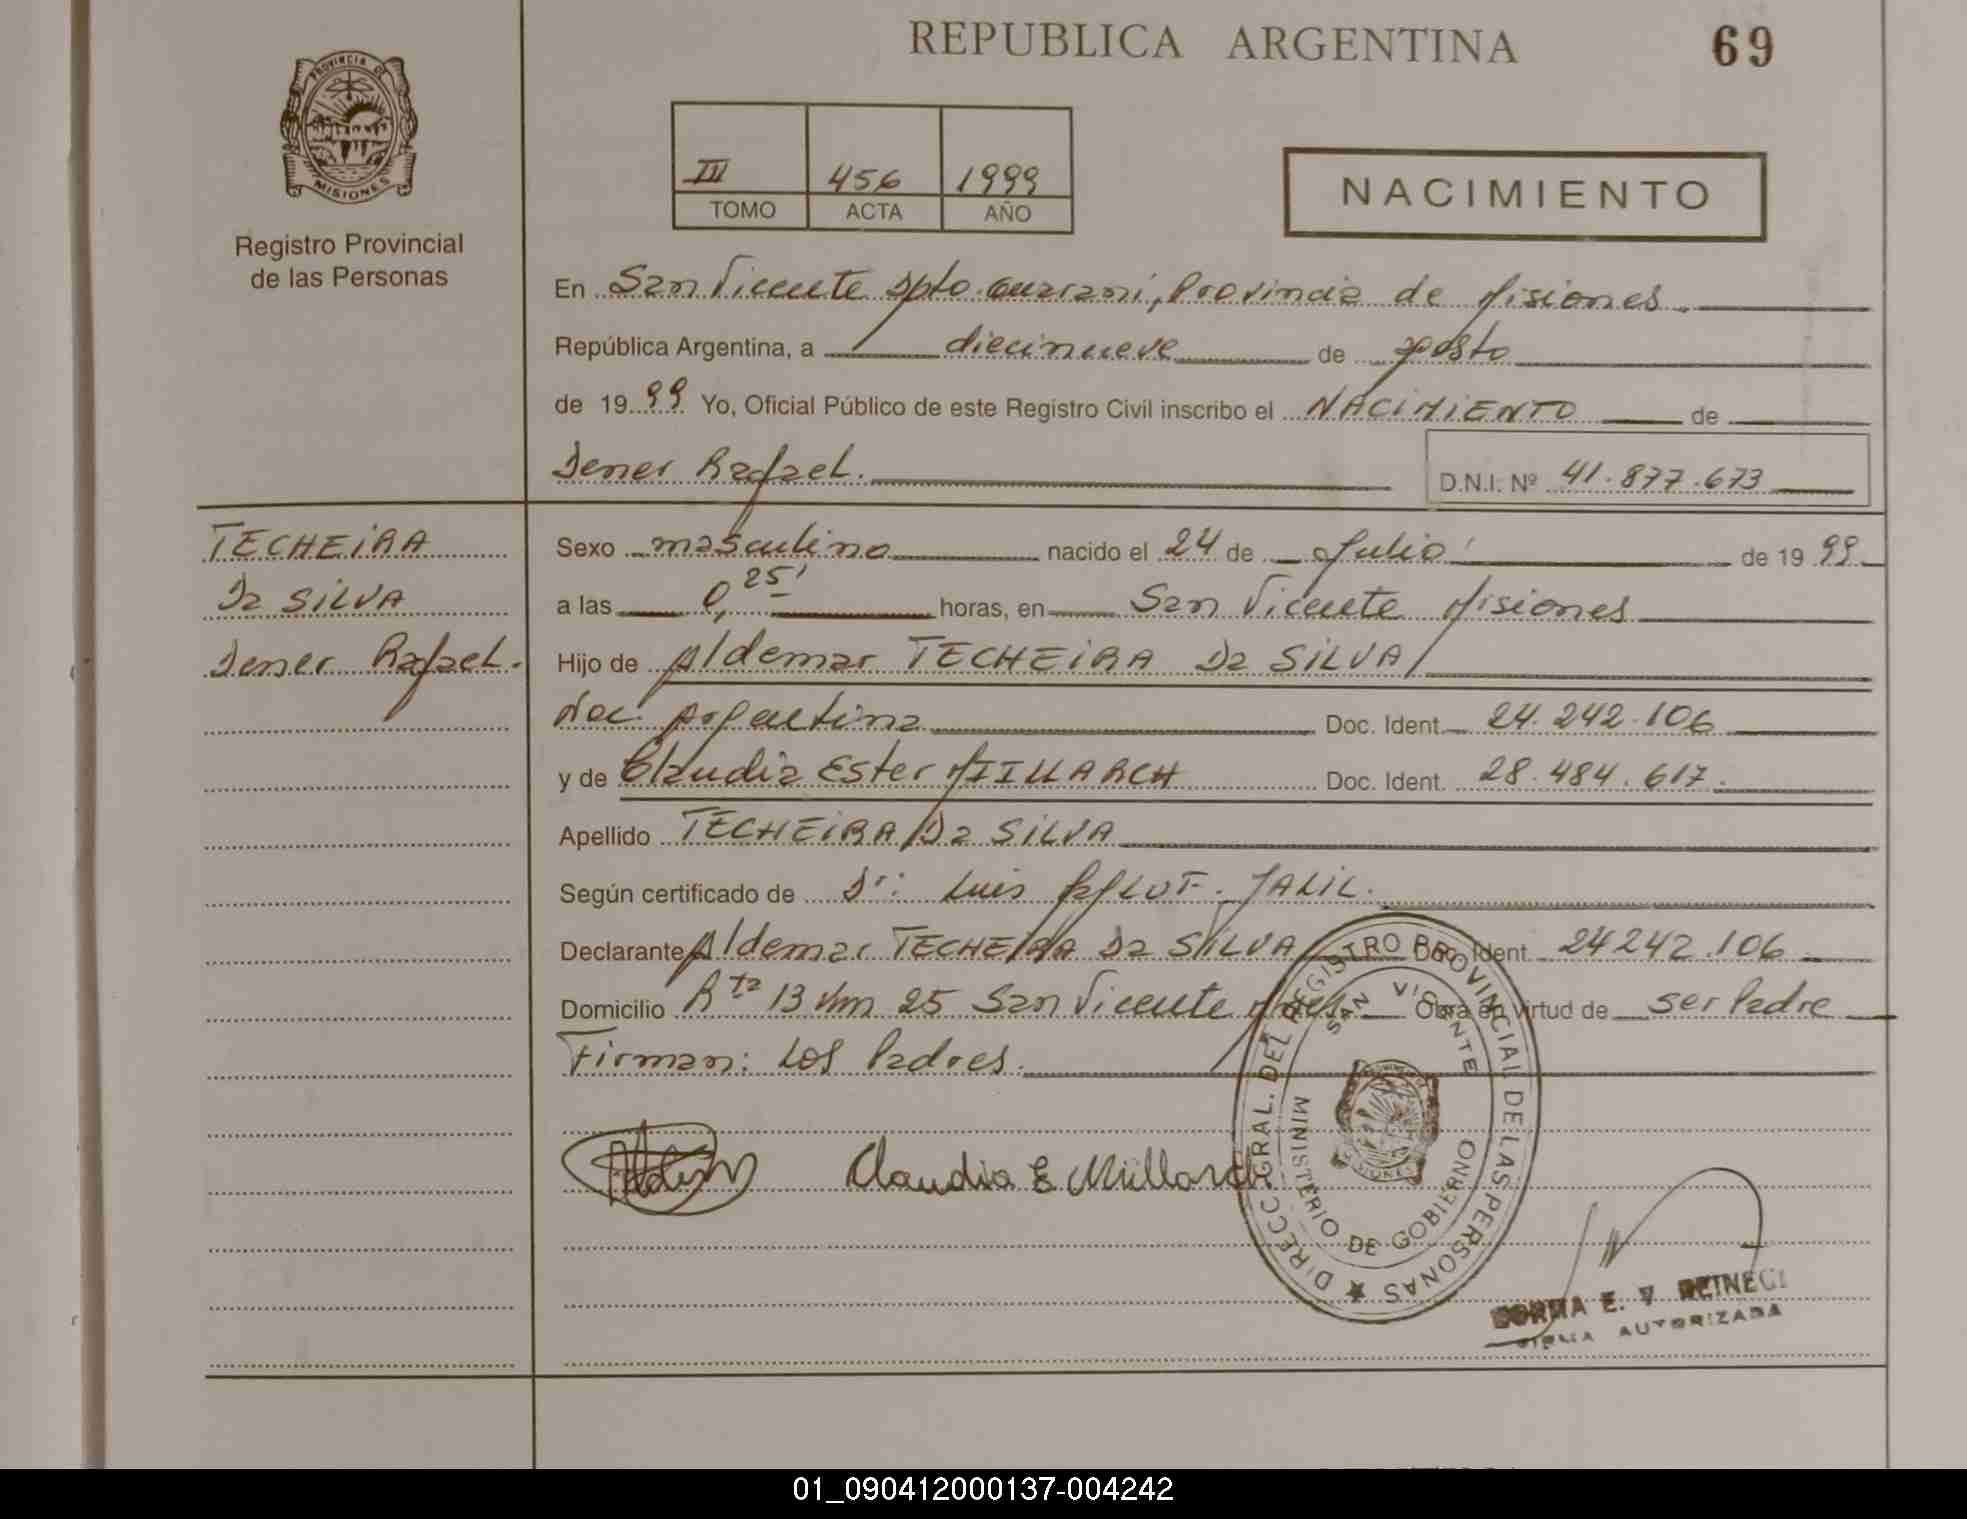 REPUBLICA ARGENTINA
69
PROVINCIA DE
MISIONES
Registro Provincial
de las Personas
III 456 1999
TOMO ACTA AÑO
NACIMIENTO
En San Vicente Dpto. Guaraní, Provincia de Misiones
República Argentina, a diecinueve de agosto
de 1999 Yo, Oficial Público de este Registro Civil inscribo el NACIMIENTO de
Dener Rafael.
D.N.I. Nº 41.877.673
TECHEIRA
Da SILVA
Dener Rafael.
Sexo masculino nacido el 24 de Julio de 1999
a las 0,25' horas, en San Vicente Misiones
Hijo de Aldemar TECHEIRA Da SILVA
Nac. Argentina Doc. Ident. 24.242.106
y de Claudia Ester Doc. Ident. 28.484.617.
Apellido TECHEIRA Da SILVA
Según certificado de Dr: Luis JALIL.
Declarante Aldemar TECHEIRA Da SILVA Doc. Ident. 24242.106
Domicilio Rta 13 Km 25 San Vicente Mnes. Obra en virtud de ser Padre
Firman: Los Padres.
Claudia E Müllarch
DIRECC. GRAL. DEL REGISTRO PROVINCIAL DE LAS PERSONAS
SAN VICENTE
MINISTERIO DE GOBIERNO
MISIONES
E. V
FIRMA AUTORIZADA
01_090412000137-004242